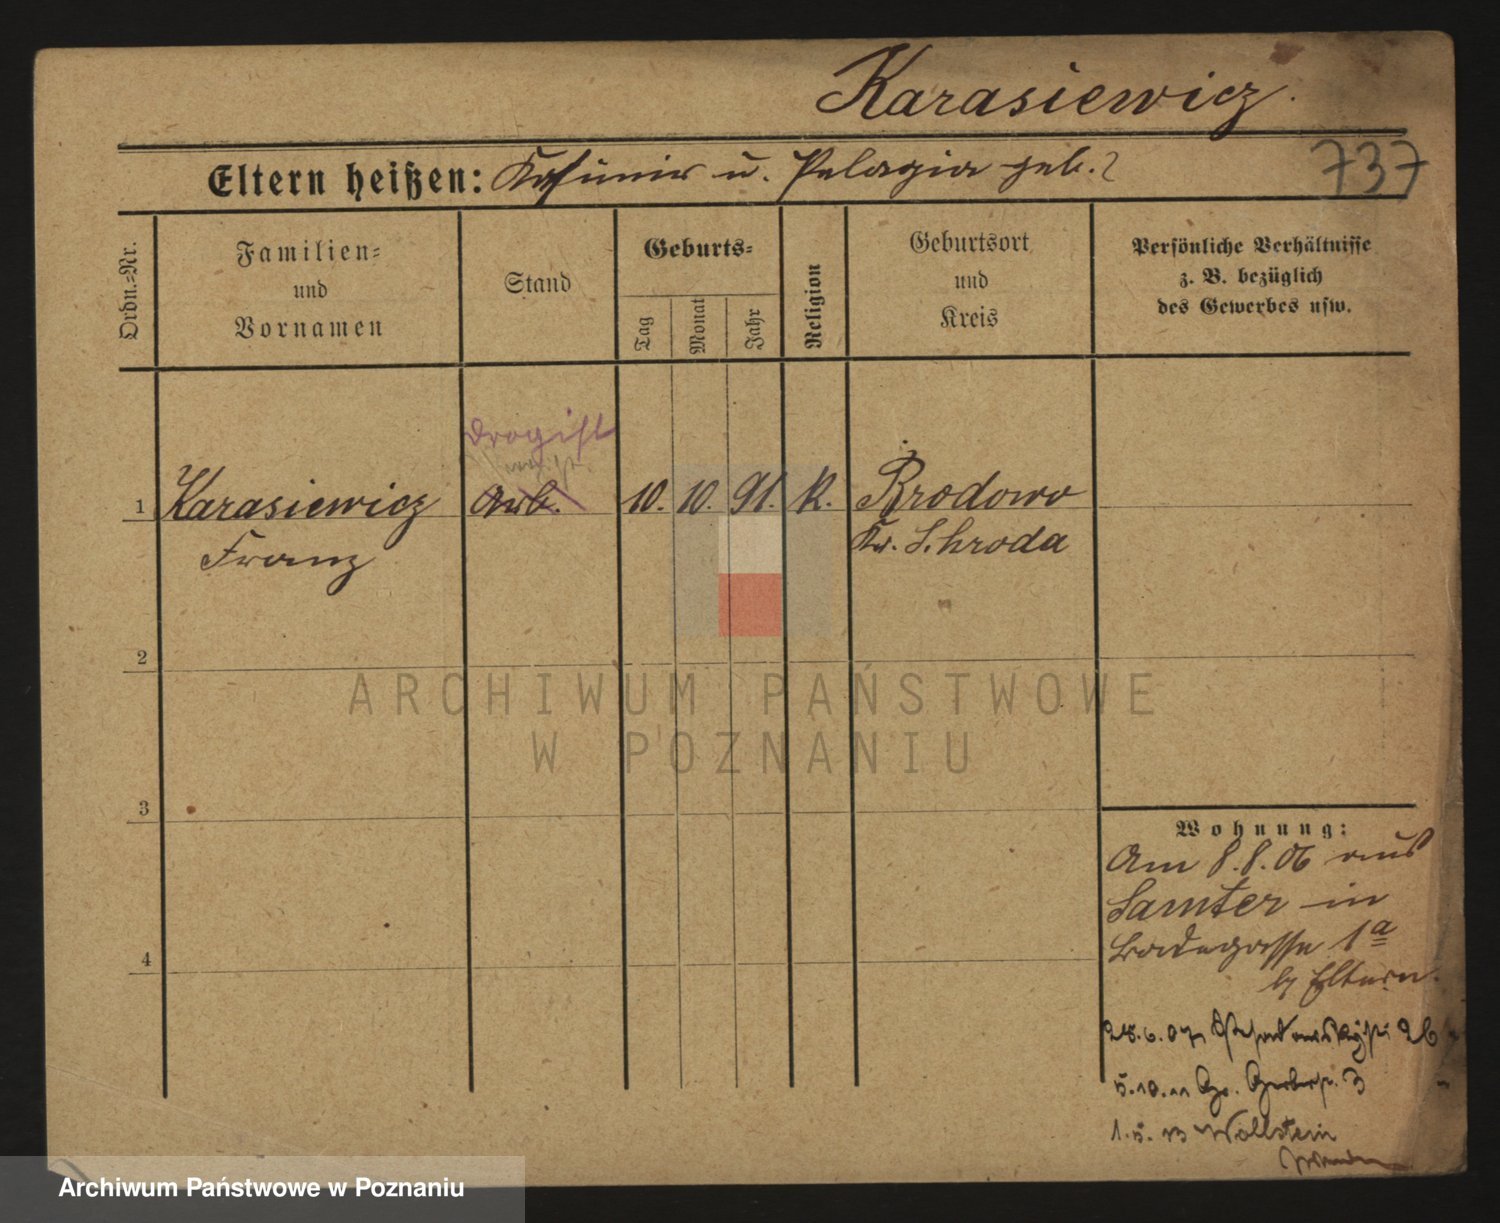 Karasiewicz.
737
Eltern heißen: Kasimir u. Pelagia geb. ?
Ordn.=Nr.
Familien=
und
Vornamen
Stand
Geburts=
Tag
Monat
Jahr
Religion
Geburtsort
und
Kreis
Persönliche Verhältnisse
z. B. bezüglich
des Gewerbes usw.
Drogist
1 Karasiewicz Arb. 10. 10. 91. K. Brodowo
Franz Kr. Schroda
2
3
4
Wohnung:
Am 8.8.06 aus
Samter in
Badegasse 1a
b/ Eltern.
28.6.07 26
5.10.11 Gr. Gerberstr. 3
1.5.13 Wollstein
ARCHIWUM PAŃSTWOWE
W POZNANIU
Archiwum Państwowe w Poznaniu